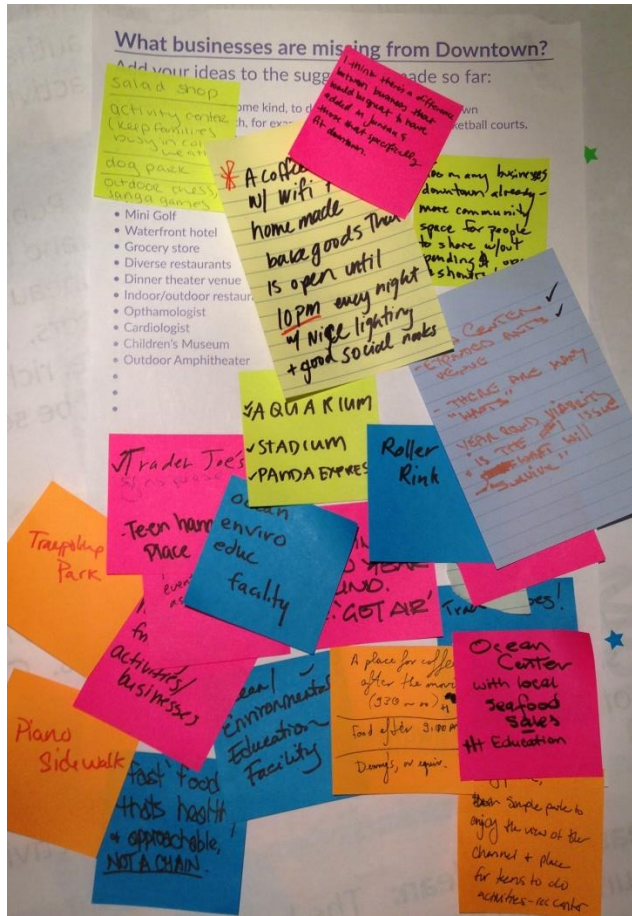 What businesses are missing from Downtown?
Add your ideas to the sugg ade so far:
ome kind, to d wn
h, for exa ketball courts,
salad shop
activity cente
(keep families
busy in col
weath
dog park
outdoor chess,
janga games
I think there's a difference
between businesses that
would be great to have
added in Juneau &
those that specifically
fit downtown.
A coffee
w/ wifi
homemade
bake goods that
is open until
10pm every night
w/ nice lighting
+ good social nooks
too many businesses
downtown already -
more community
space for people
to share w/out
pending $
• Mini Golf
• Waterfront hotel
• Grocery store
• Diverse restaurants
• Dinner theater venue
• Indoor/outdoor restaur
• Opthamologist
• Cardiologist
• Children's Museum
• Outdoor Amphitheater
CENTER ✓
- EXPANDED ARTS ✓
VENUE
- THERE ARE MANY
"WANTS"
YEAR ROUND VIABILITY
IS THE #1 ISSUE
- WHAT WILL
"SURVIVE"
✓AQUARIUM
✓STADIUM
✓PANDA EXPRES
Roller
Rink
✓Trader Joe's
-Teen han
Place
ocean
enviro
educ
facility
YEAR
UND.
'GOT AIR'
Trampoline
Park
even
as
activities/
businesses
Tra es!
Piano
Sidewalk
ean/
environmental
Education
Facility
A place for coffee
after the movie
(930 ~ 10)
Food after 9:00 PM
Dennys, or equiv.
Ocean
Center
with local
seafood
sales
## Education
fast food
thats health
& approachable,
NOT A CHAIN.
simple parks to
enjoy the view of the
channel + place
for teens to do
activities - rec center